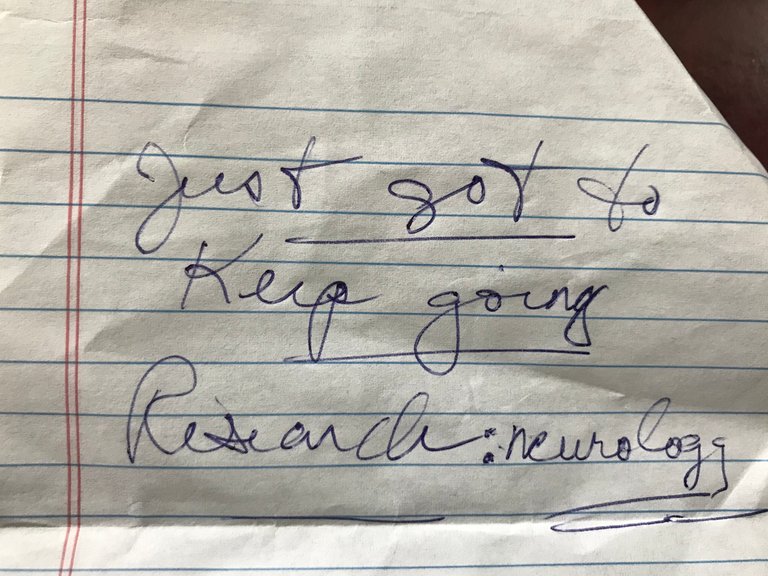 Just got to
Keep going
Research: neurology